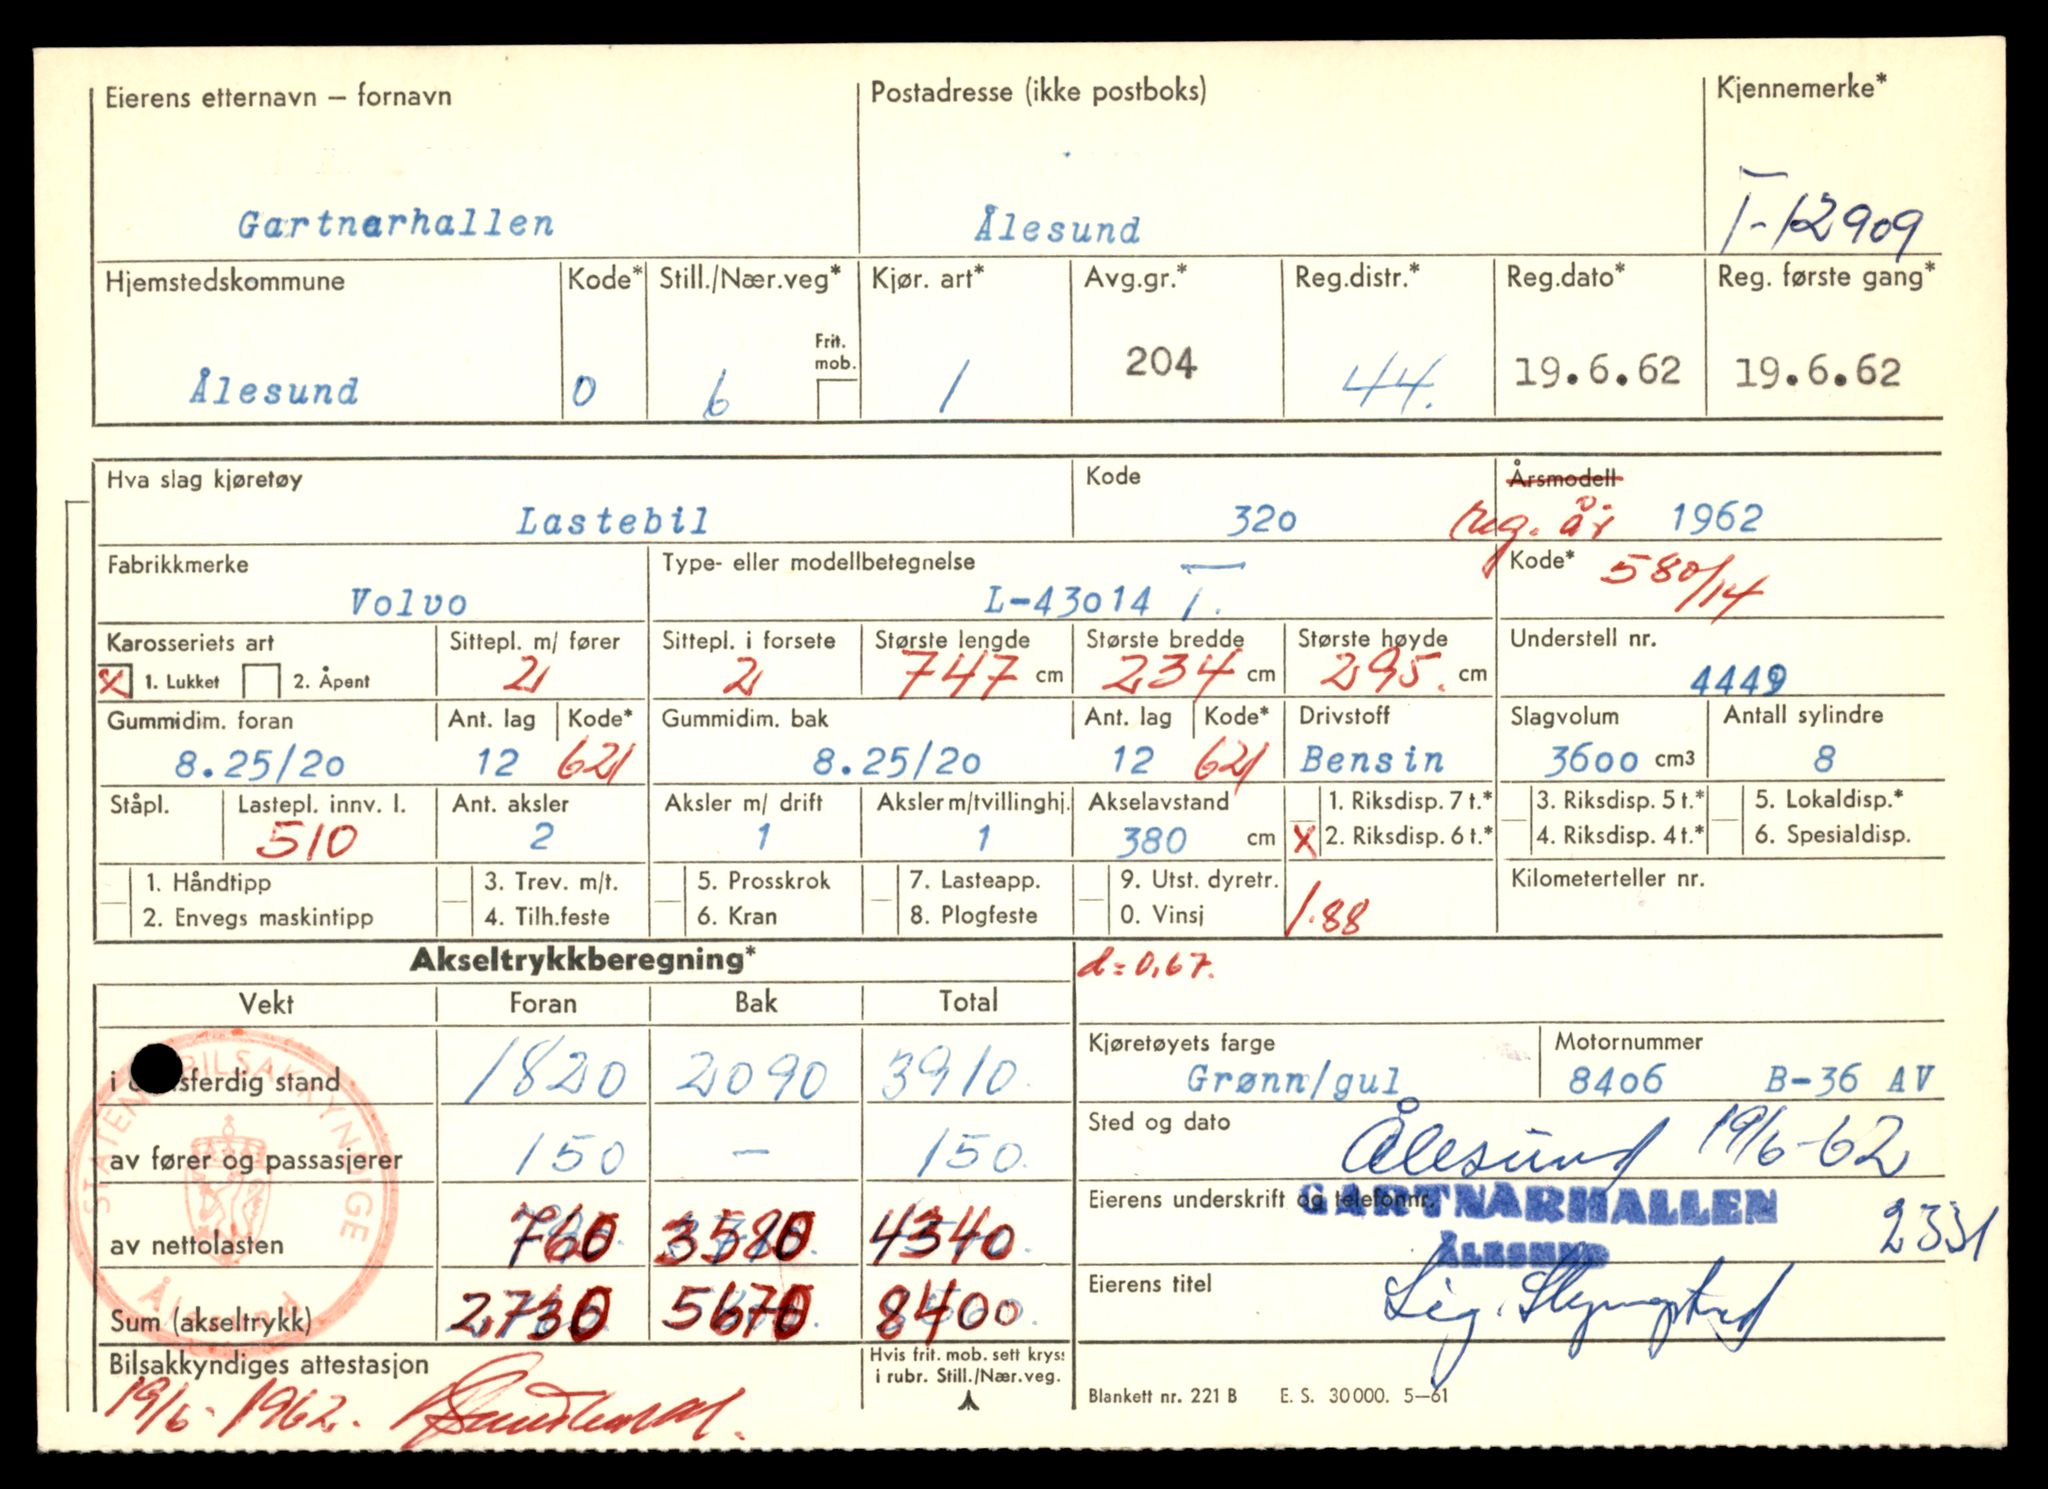 Eierens etternavn – fornavn
Postadresse (ikke postboks)
Kjennemerke*
Gartnarhallen
Ålesund
T-12909
Hjemstedskommune
Kode*
Still./Nær.veg*
Kjør. art*
Avg.gr.*
Reg.distr.*
Reg.dato*
Reg. første gang*
Frit. mob.
Ålesund
0
6
1
204
44.
19.6.62
19.6.62
Hva slag kjøretøy
Kode
Årsmodell
Lastebil
320
reg. år 1962
Fabrikkmerke
Type- eller modellbetegnelse
Kode* 580/14
Volvo
L-43014 T.
Karosseriets art
Sittepl. m/ fører
Sittepl. i forsete
Største lengde
Største bredde
Største høyde
Understell nr.
x 1. Lukket
2. Åpent
2
2
747 cm
234 cm
295. cm
4449
Gummidim. foran
Ant. lag
Kode*
Gummidim. bak
Ant. lag
Kode*
Drivstoff
Slagvolum
Antall sylindre
8.25/20
12
621
8.25/20
12
621
Bensin
3600 cm3
8
Ståpl.
Lastepl. innv. l.
Ant. aksler
Aksler m/ drift
Aksler m/tvillinghj.
Akselavstand
1. Riksdisp. 7 t.*
3. Riksdisp. 5 t.*
5. Lokaldisp.*
510
2
1
1
380 cm
x 2. Riksdisp. 6 t.*
4. Riksdisp. 4 t.*
6. Spesialdisp.
1. Håndtipp
3. Trev. m/t.
5. Prosskrok
7. Lasteapp.
9. Utst. dyretr.
Kilometerteller nr.
2. Envegs maskintipp
4. Tilh.feste
6. Kran
8. Plogfeste
0. Vinsj
1.88
Akseltrykkberegning*
d=0,67.
Vekt
Foran
Bak
Total
i driftsferdig stand
1820
2090
3910.
Kjøretøyets farge
Motornummer
Grønn/gul
8406 B-36 AV
av fører og passasjerer
150
–
150.
Sted og dato
Ålesund 19/6-62
av nettolasten
760
3580
4340
Eierens underskrift og telefonnr.
GARTNARHALLEN
ÅLESUND
2331
Sum (akseltrykk)
2730
5670
8400
Eierens titel
Sig.
STATENS BILSAKKYNDIGE
Ålesund
Bilsakkyndiges attestasjon
19/6-1962.
Hvis frit. mob. sett kryss
i rubr. Still./Nær.veg.
Blankett nr. 221 B E. S. 30000. 5–61